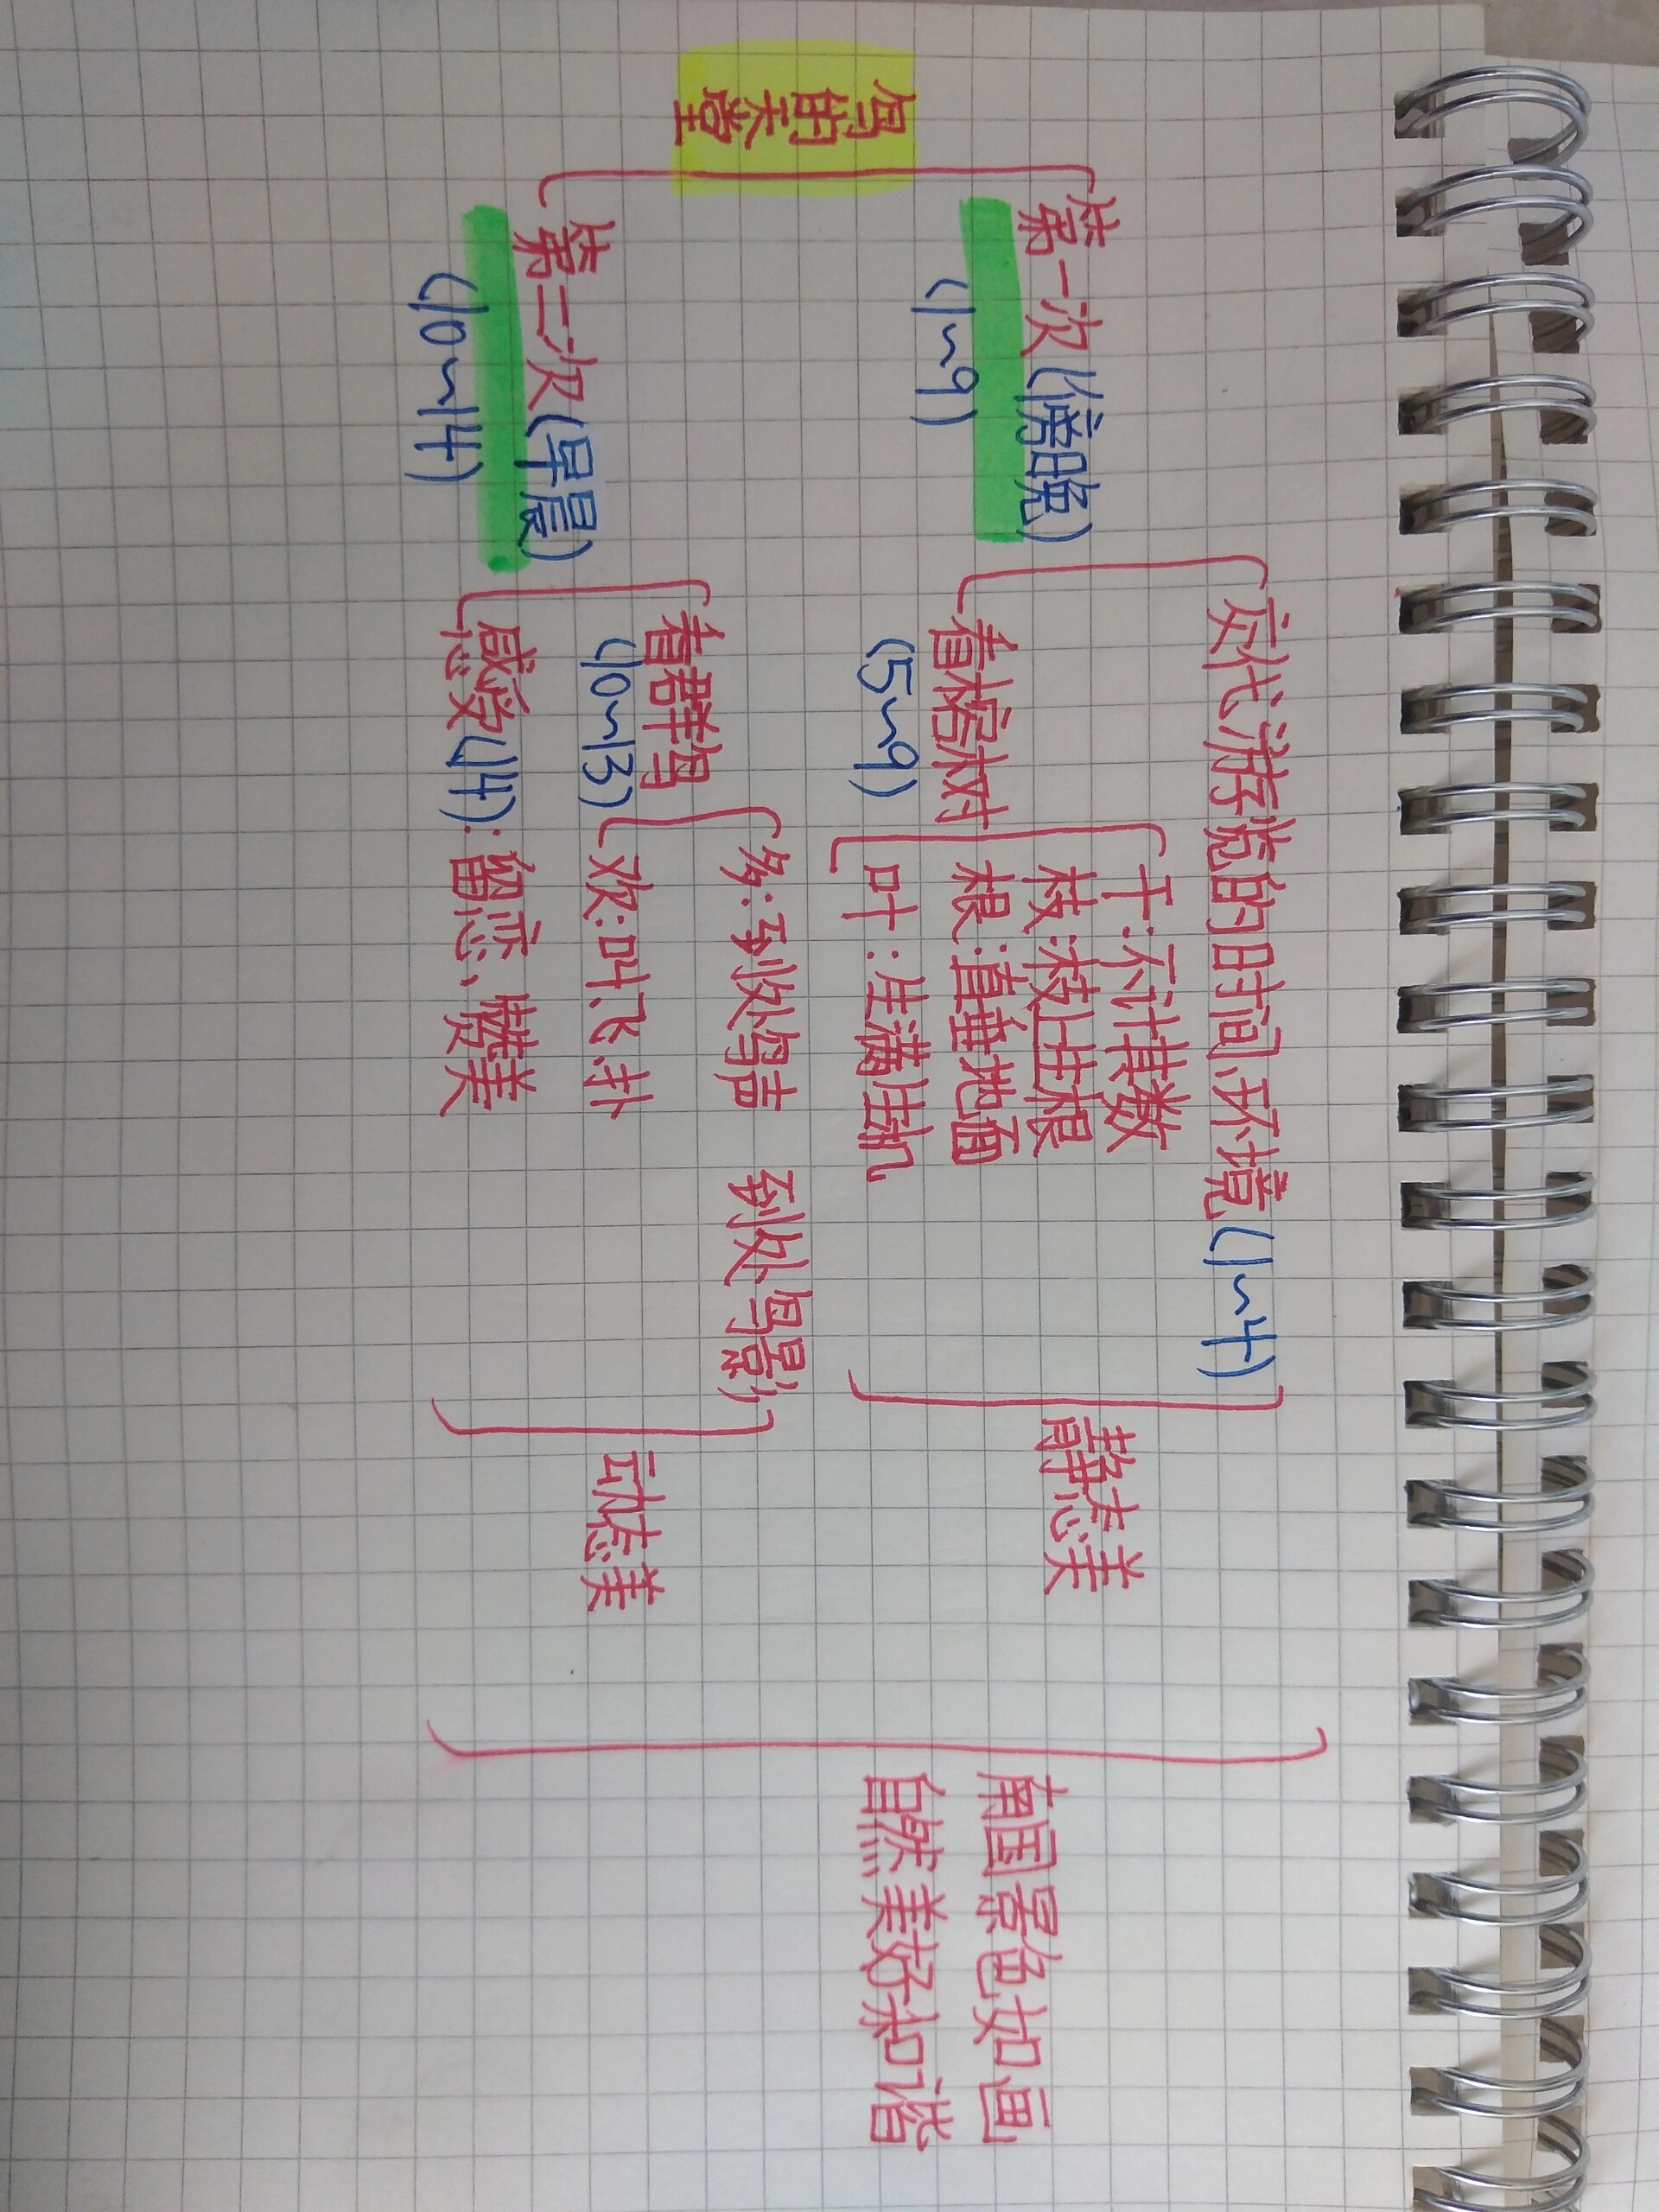 鸟的天堂
第一次(傍晚)
(1~9)
交代游览的时间、环境(1~4)
看榕树
(5~9)
干:不计其数
枝:枝上生根
根:直垂地面
叶:生满生机
静态美
第二次(早晨)
(10~14)
看群鸟
(10~13)
多:到处鸟声 到处鸟影
欢:叫、飞、扑
感受(14):留恋、赞美
动态美
南国景色如画
自然美好和谐